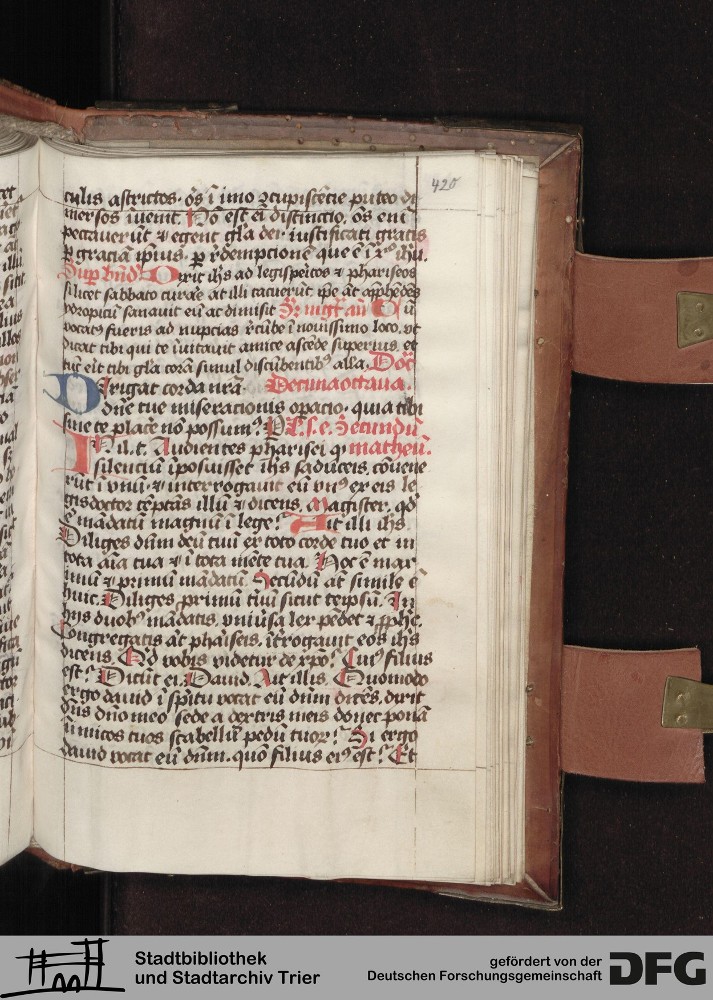 420
culis astrictos. oẽs ĩ imo ↄcupiscẽcie puteo di
mersos ĩuenit. Nõ est eĩ distinctio. oẽs eni
peccauerũt ⁊ egent gľa dei. iustificati gratis
ꝑ gracia ipius. ꝑ rẽdemptionẽ que ẽ ĩ xᵒ ihũ.
Sup bñd. Dixit ihs ad legisperitos ⁊ phariseos
silicet sabbato curare at illi tacuerũt. ipe at apphẽdẽs
ydropicũ sanauit eũ ac dimisit Sr mgt̃ an̄ Cũ
vocatꝯ fueris ad nupcias rẽcũbe ĩ nouissimo loco. vt
dicat tibi qui te ĩuitauit amice ascẽde superius. et
tũc erit tibi gľa corã simul discũbentibꝯ alla. Doc
Dirigat corda nr̃a. Decimaoctaua.
dñe tue miseracionis oꝑacio. quia tibi
sine te placẽ nõ possumꝯ. P L. s. e. Secundũ
IN il. t. Audientes pharisei qꝫ matheũ.
silenciũ ĩposuisset ihs saduceis. cõuene
rũt ĩ vnũ. ⁊ interrogauit eũ vnꝯ ex eis le
gisdoctor tẽptãs illũ ⁊ dicens. Magister. qd
ẽ mãdatũ magnũ ĩ lege? Ait illi ihs.
Diliges dñm deũ tuũ ex toto corde tuo et in
tota aĩa tua ⁊ ĩ tota mẽte tua. Hoc ẽ maxi
mũ ⁊ primũ mãdatũ. Secũdũ at simile ẽ
huic. Diliges primũ tuũ sicut teipsũ. In
hijs duobꝯ mãdatis. vniũsa lex pẽdet ⁊ ꝓphe.
Congregatis at phaĩseis. ĩtrogauit eos ihs
dicens. Qd vobis videtur de xpo? Cuiꝯ filius
est? Dicũt ei. Dauid. Ait illis. Quomodo
ergo dauid ĩ spĩtu vocat eũ dñm dicẽs. dixit
dñs dño meo sede a dextris meis donec ponã
ĩimicos tuos scabellũ pedũ tuoꝝ? Si ergo
dauid vocat eũ dñm. quõ filius eiꝯ est? Et
Stadtbibliothek
und Stadtarchiv Trier
gefördert von der
Deutschen Forschungsgemeinschaft DFG